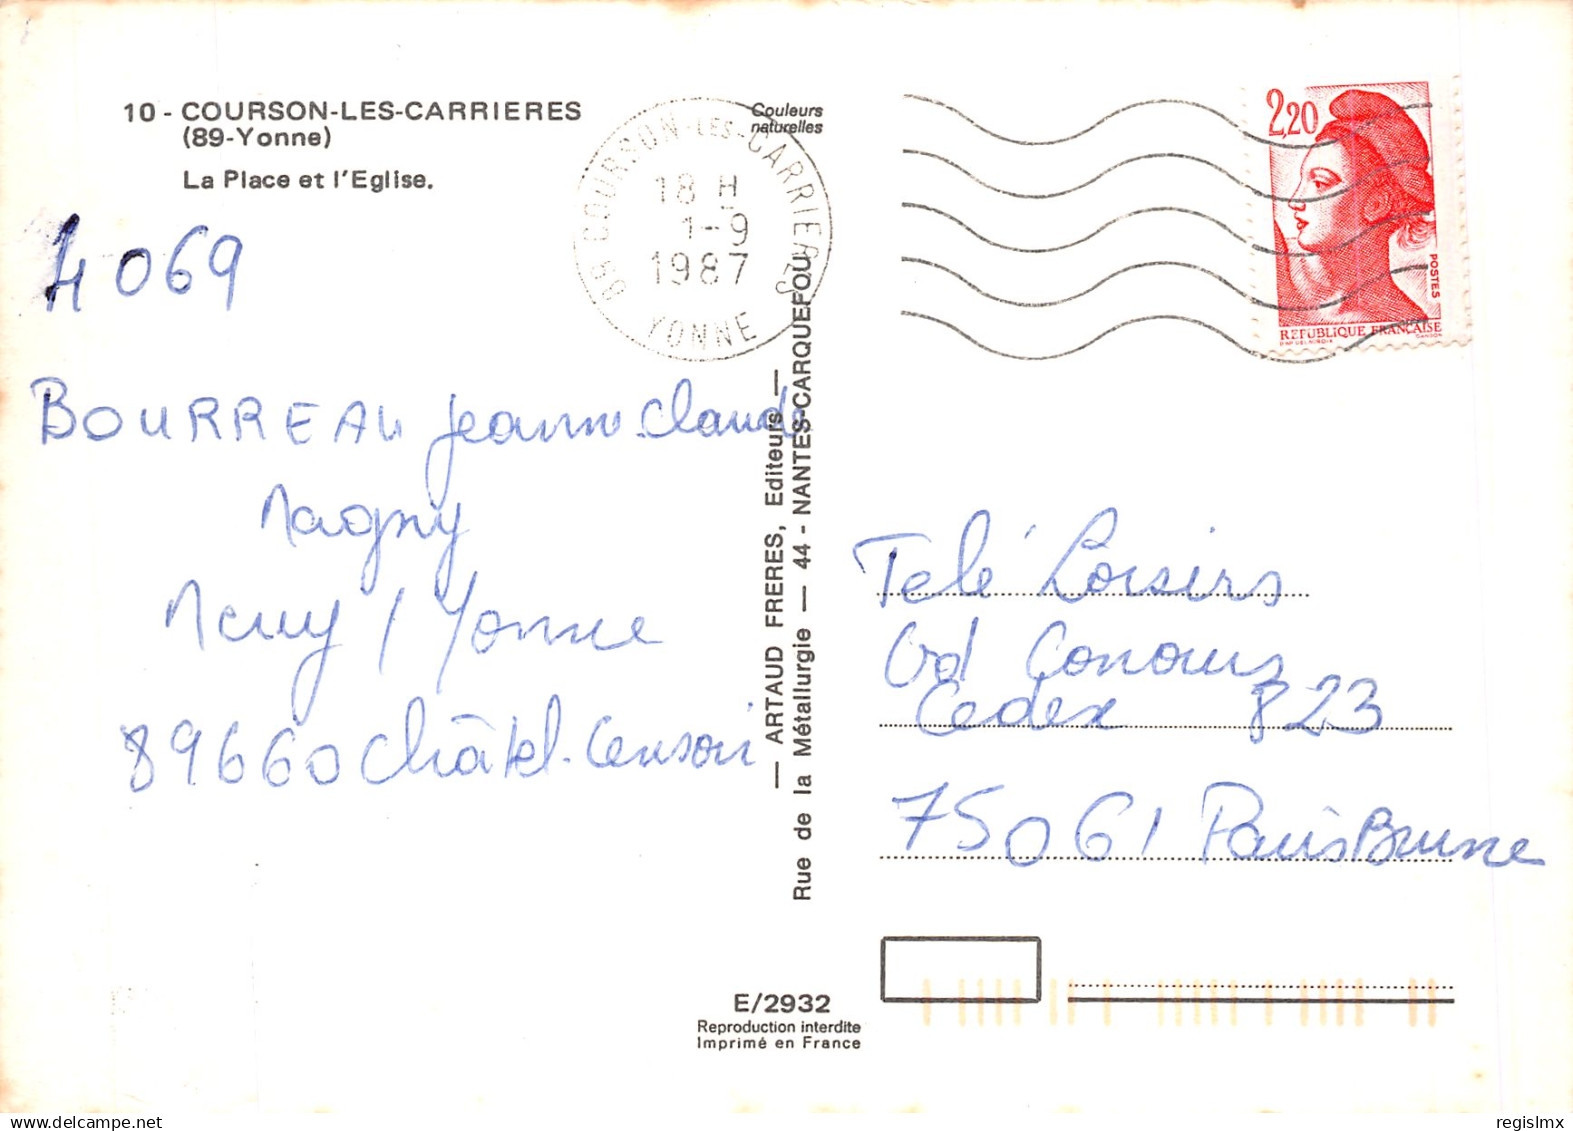 10 - COURSON-LES-CARRIERES
(89-Yonne)
La Place et l'Eglise.
4069
BOURREAU Jeanne-Claude
Magny
Merry / Yonne
89660 Châtel-Censoir
89 COURSON-LES-CARRIERES
18 H
1-9
1987
YONNE
Couleurs
naturelles
— ARTAUD FRERES, Editeurs —
Rue de la Métallurgie — 44 - NANTES-CARQUEFOU
2,20
POSTES
REPUBLIQUE FRANÇAISE
D'AP. DELACROIX GANDON
Télé Loisirs
Cedex 823
75061 Paris Brune
E/2932
Reproduction interdite
Imprimé en France
regislmx